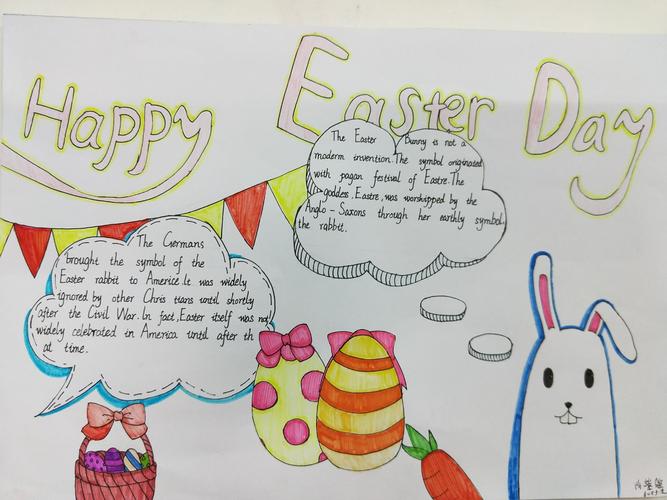 Happy Easter Day
The Easter Bunny is not a
modern invention. The symbol originated
with pagan festival of Eastre. The
goddess, Eastre, was worshipped by the
Anglo - Saxons through her earthly symbol
the rabbit.
The Germans
brought the symbol of the
Easter rabbit to Americe. It was widely
ignored by other Chris tians until shortly
after the Civil War. In fact, Easter itself was not
widely celebrated in America until after th
at time.